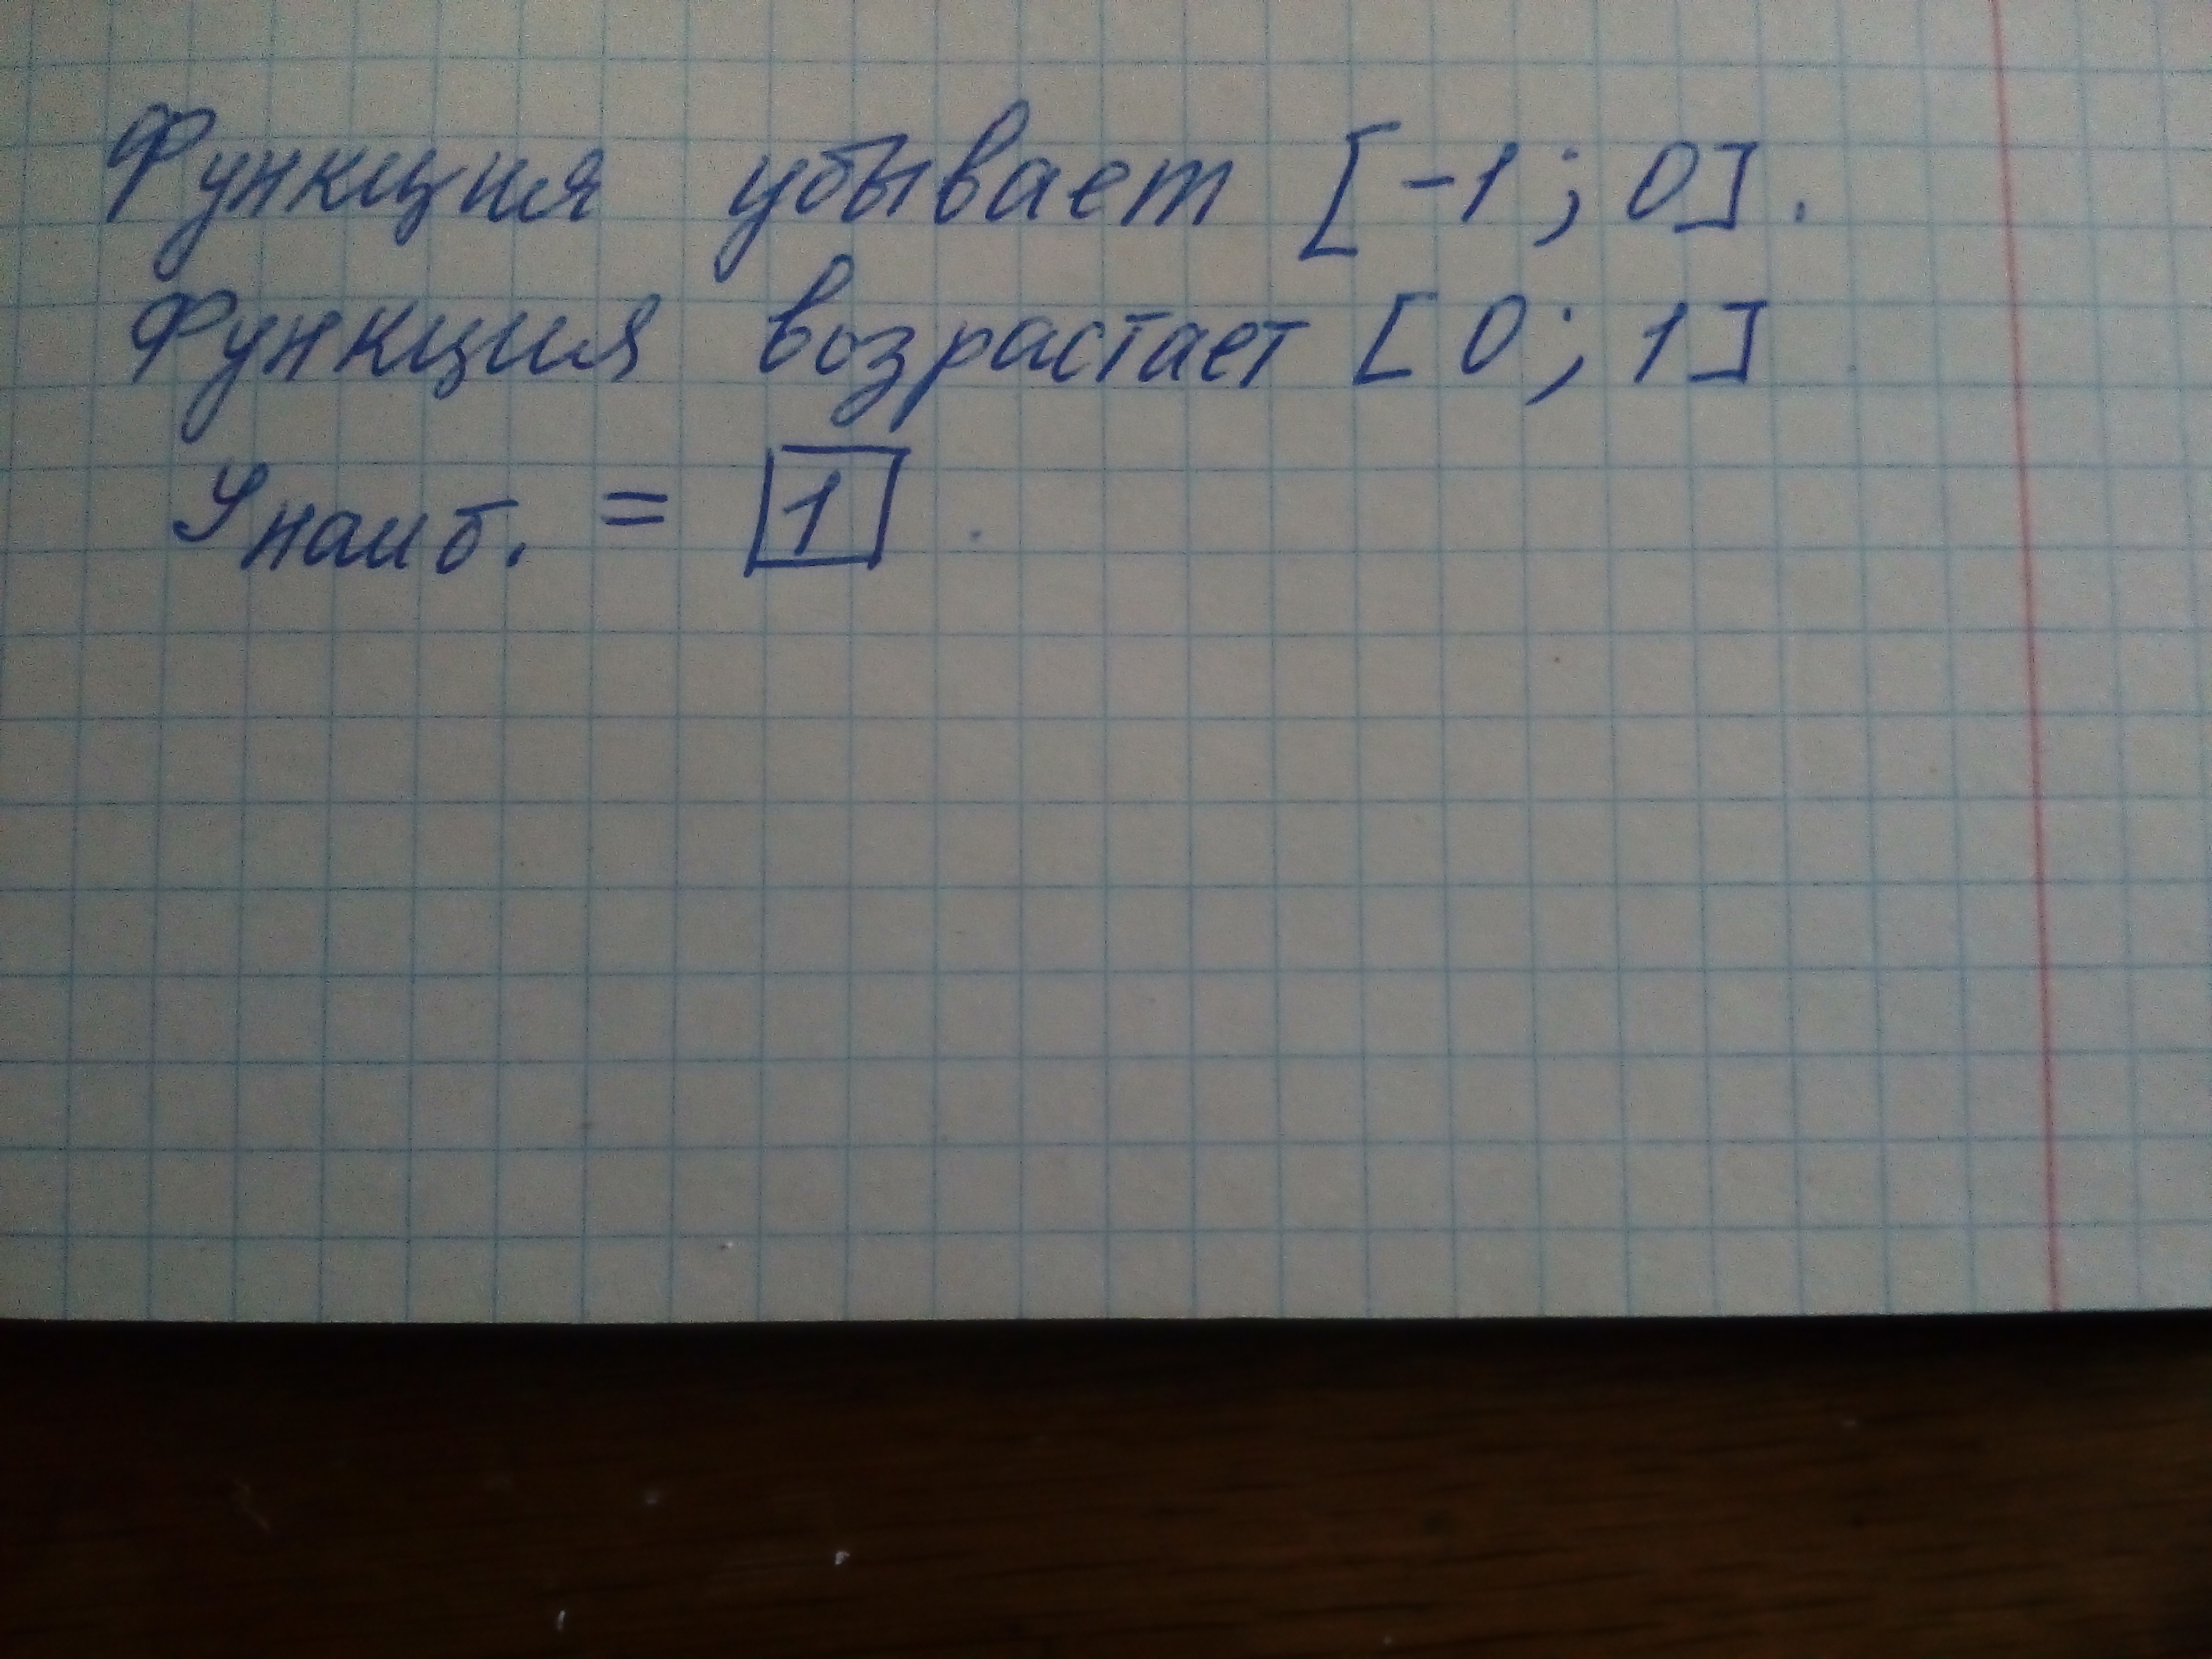 Функция убывает [-1; 0].
Функция возрастает [0; 1]
Унаиб. = 1